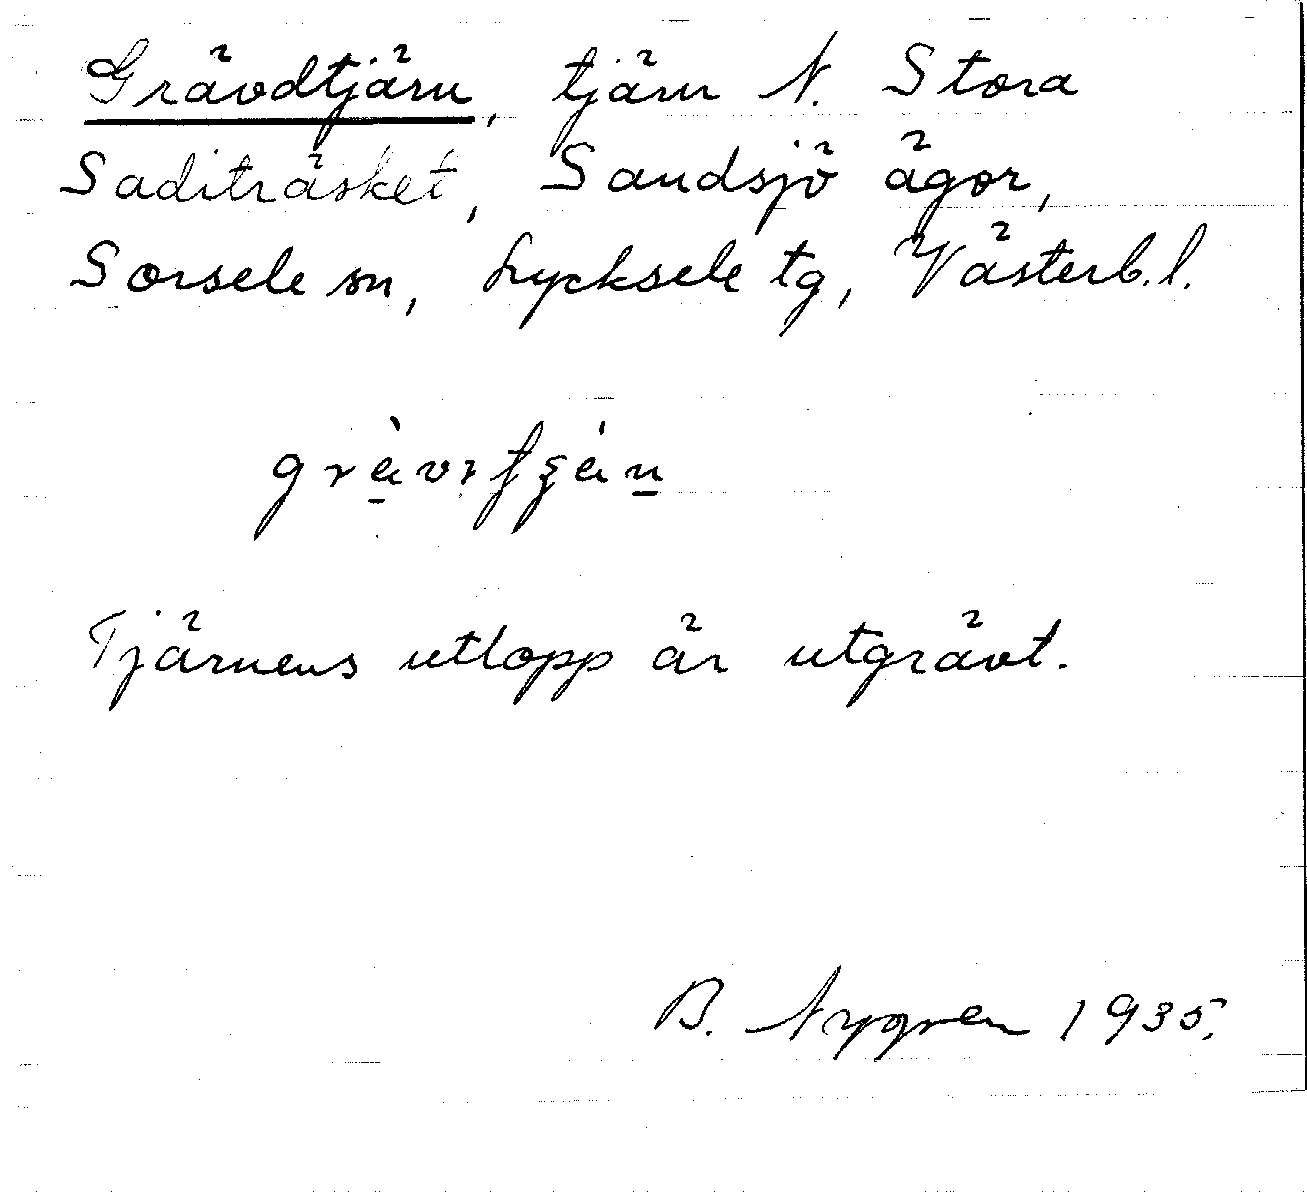 Grävdtjärn, tjärn N. Stora
Saditräsket, Sandsjö ägor,
Sorsele sn, Lycksele tg, Västerb.l.
Tjärnens utlopp är utgrävt.
B. Nygren 1935.